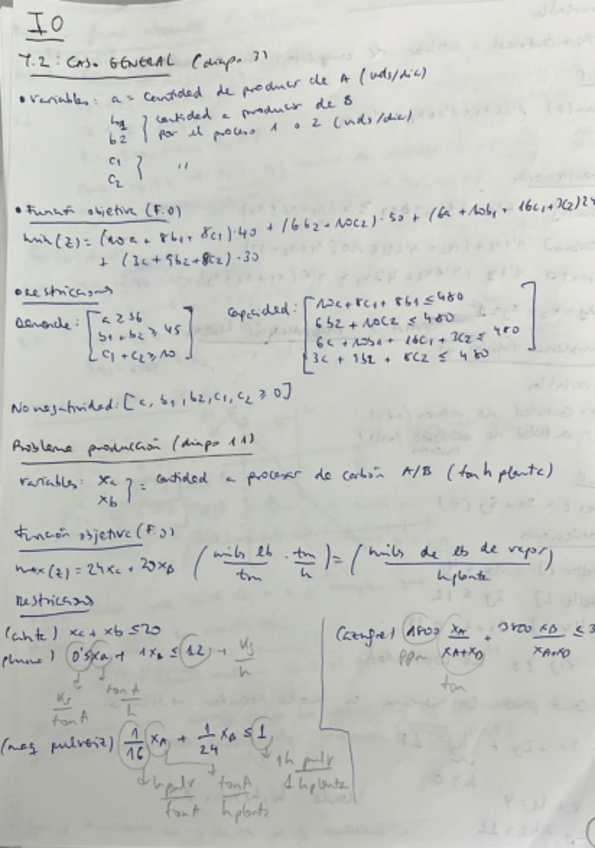 IO
7.2: CASO GENERAL (diapo 3)
• variables: a = cantidad de producir de A (uds/día)
b1
b2 } cantidad a producir de B
por el proceso 1 o 2 (uds/día)
c1
c2 } "
• Función objetivo (F.O)
min(z) = (10a + 8b1 + 8c1)·40 + (6b2 + 10c2)·50 + (6a + 10b1 + 16c1 + 3c2)24
+ (3a + 9b2 + 8c2)·30
• restricciones
Demanda: [ a ≥ 36
b1 + b2 ≥ 45
c1 + c2 ≥ 10 ]
Capacidad: [ 10a + 8c1 + 8b1 ≤ 480
6b2 + 10c2 ≤ 480
6a + 10b1 + 16c1 + 3c2 ≤ 480
3a + 9b2 + 8c2 ≤ 480 ]
No negatividad: [a, b1, b2, c1, c2 ≥ 0]
Problema producción (diapo 11)
variables: xa
xb } = cantidad a procesar de carbón A/B (ton h planta)
Función objetivo (F.O)
max(z) = 24xa + 20xb (mils lb / tm · tm / h) = (mils de lb de vapor / h planta)
restricciones
xa + xb ≤ 20
0'5xa + 1xb ≤ 12 → kg / h
kg / ton A
ton A / h
(maq pulveriz) 1/16 xA + 1/24 xB ≤ 1
h pulv / ton A
ton A / h planta
1h pulv / 1 h planta
(azufre) 1800 xA / xA+xB + 3800 xB / xA+xB ≤ 3
ppm
ton